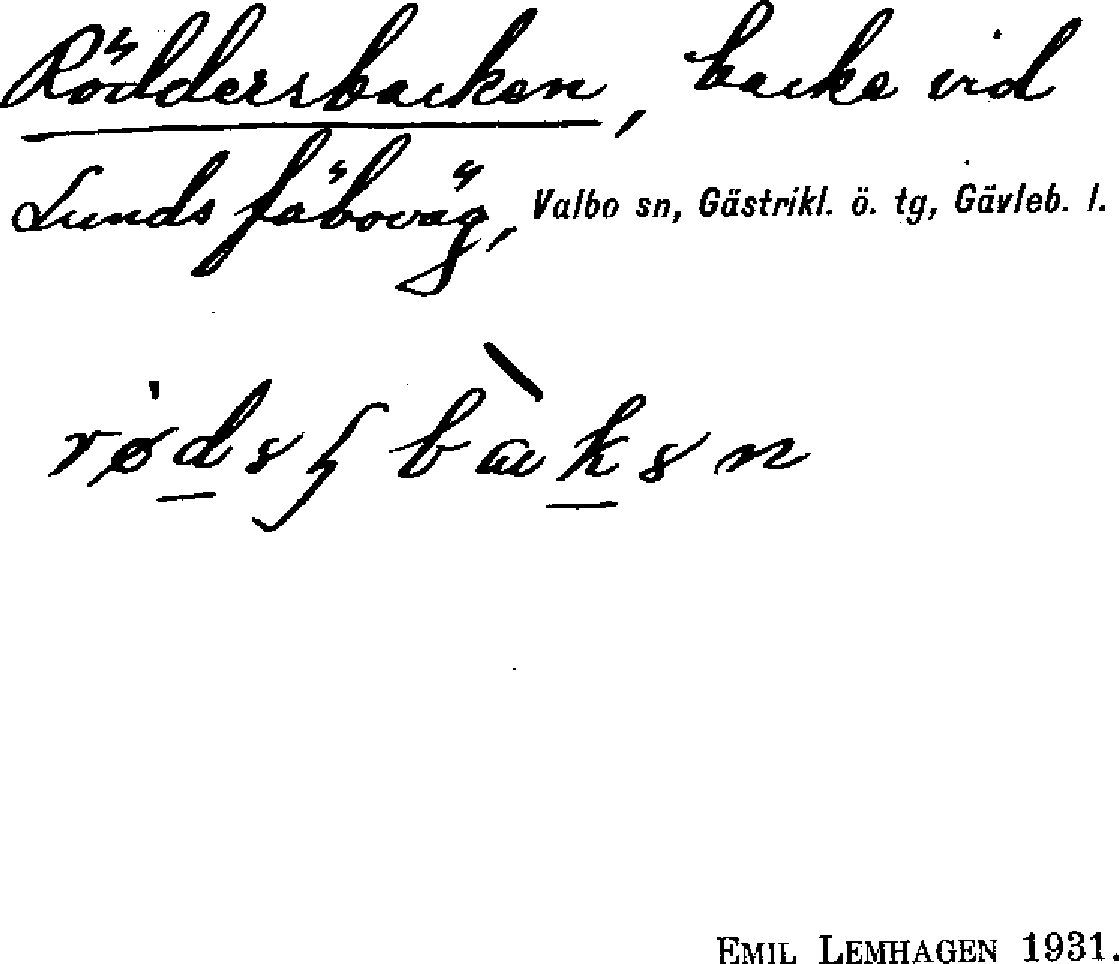 Röddersbacken, backe vid
Lunds fäboväg, Valbo sn, Gästrikl. ö. tg, Gävleb. l.
EMIL LEMHAGEN 1931.